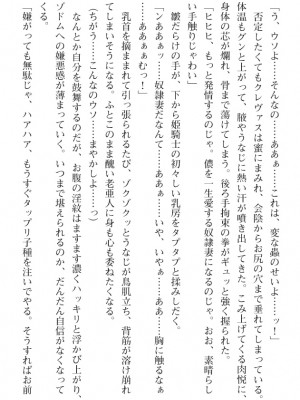 「う、ウソよ、そんなの……あぁぁ……これは、変な蟲のせいよっ……」
否定したくてもクレヴァスは蜜にまみれ、会陰からお尻の穴まで垂れてしまっている。
体温もグンと上がって、腋やうなじに熱い汗が噴き出してきた。こみ上げてくる肉悦に、
身体の芯が爛れ、骨まで蕩けてしまう。後ろ手拘束の拳がギュッと強く握られた。
「ヒヒヒ、もっと発情するのじゃ。儂を一生愛する奴隷妻になるのじゃ。おお、素晴らし
い手触りじゃわい」
皺だらけの手が、下から姫騎士の初々しい乳房をタプタプと揉みしだく。
「ンあぁぁッ……奴隷妻だなんて……あぁぁ……いや、いやぁ……あぁ……胸に触るなぁ
……あぁぁぁむっ！」
乳首を摘ままれて引っ張られるたび、ゾクゾクッとうなじが鳥肌立ち、背筋が溶け崩れ
てしまいそうになる。ふとこのまま醜い老亜人に身も心も委ねたくなる。
（ちがう……こんなのウソ……まやかしよ……っ）
なんとか自分を鼓舞するのだが、お腹の淫紋はますます濃くハッキリと浮かび上がり、
ゾドムへの嫌悪感が薄まっていく。いつまで堪えられるのか、だんだん自信がなくなって
くる。
「嫌がっても無駄じゃ、ハアハア、もうすぐタップリ子種を注いでやる。そうすればお前